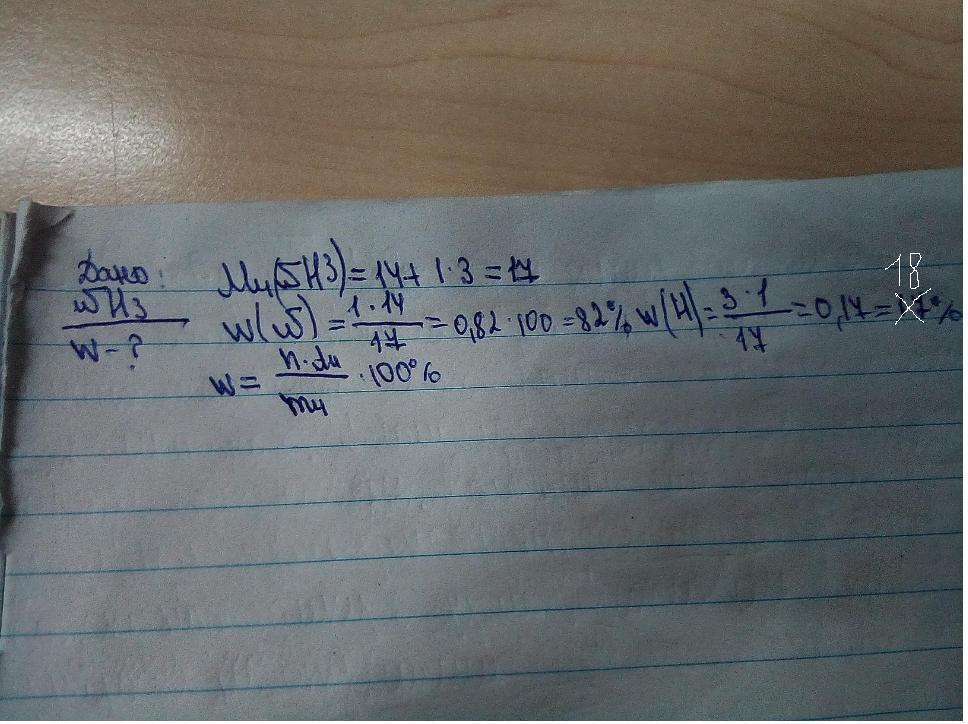 Дано:
NH3
W - ?
Mч(NH3) = 14 + 1·3 = 17
W(N) = 1·14/17 = 0,82·100 = 82% W(H) = 3·1/17 = 0,17 = 17% 18
W = n·Ач/mч ·100%